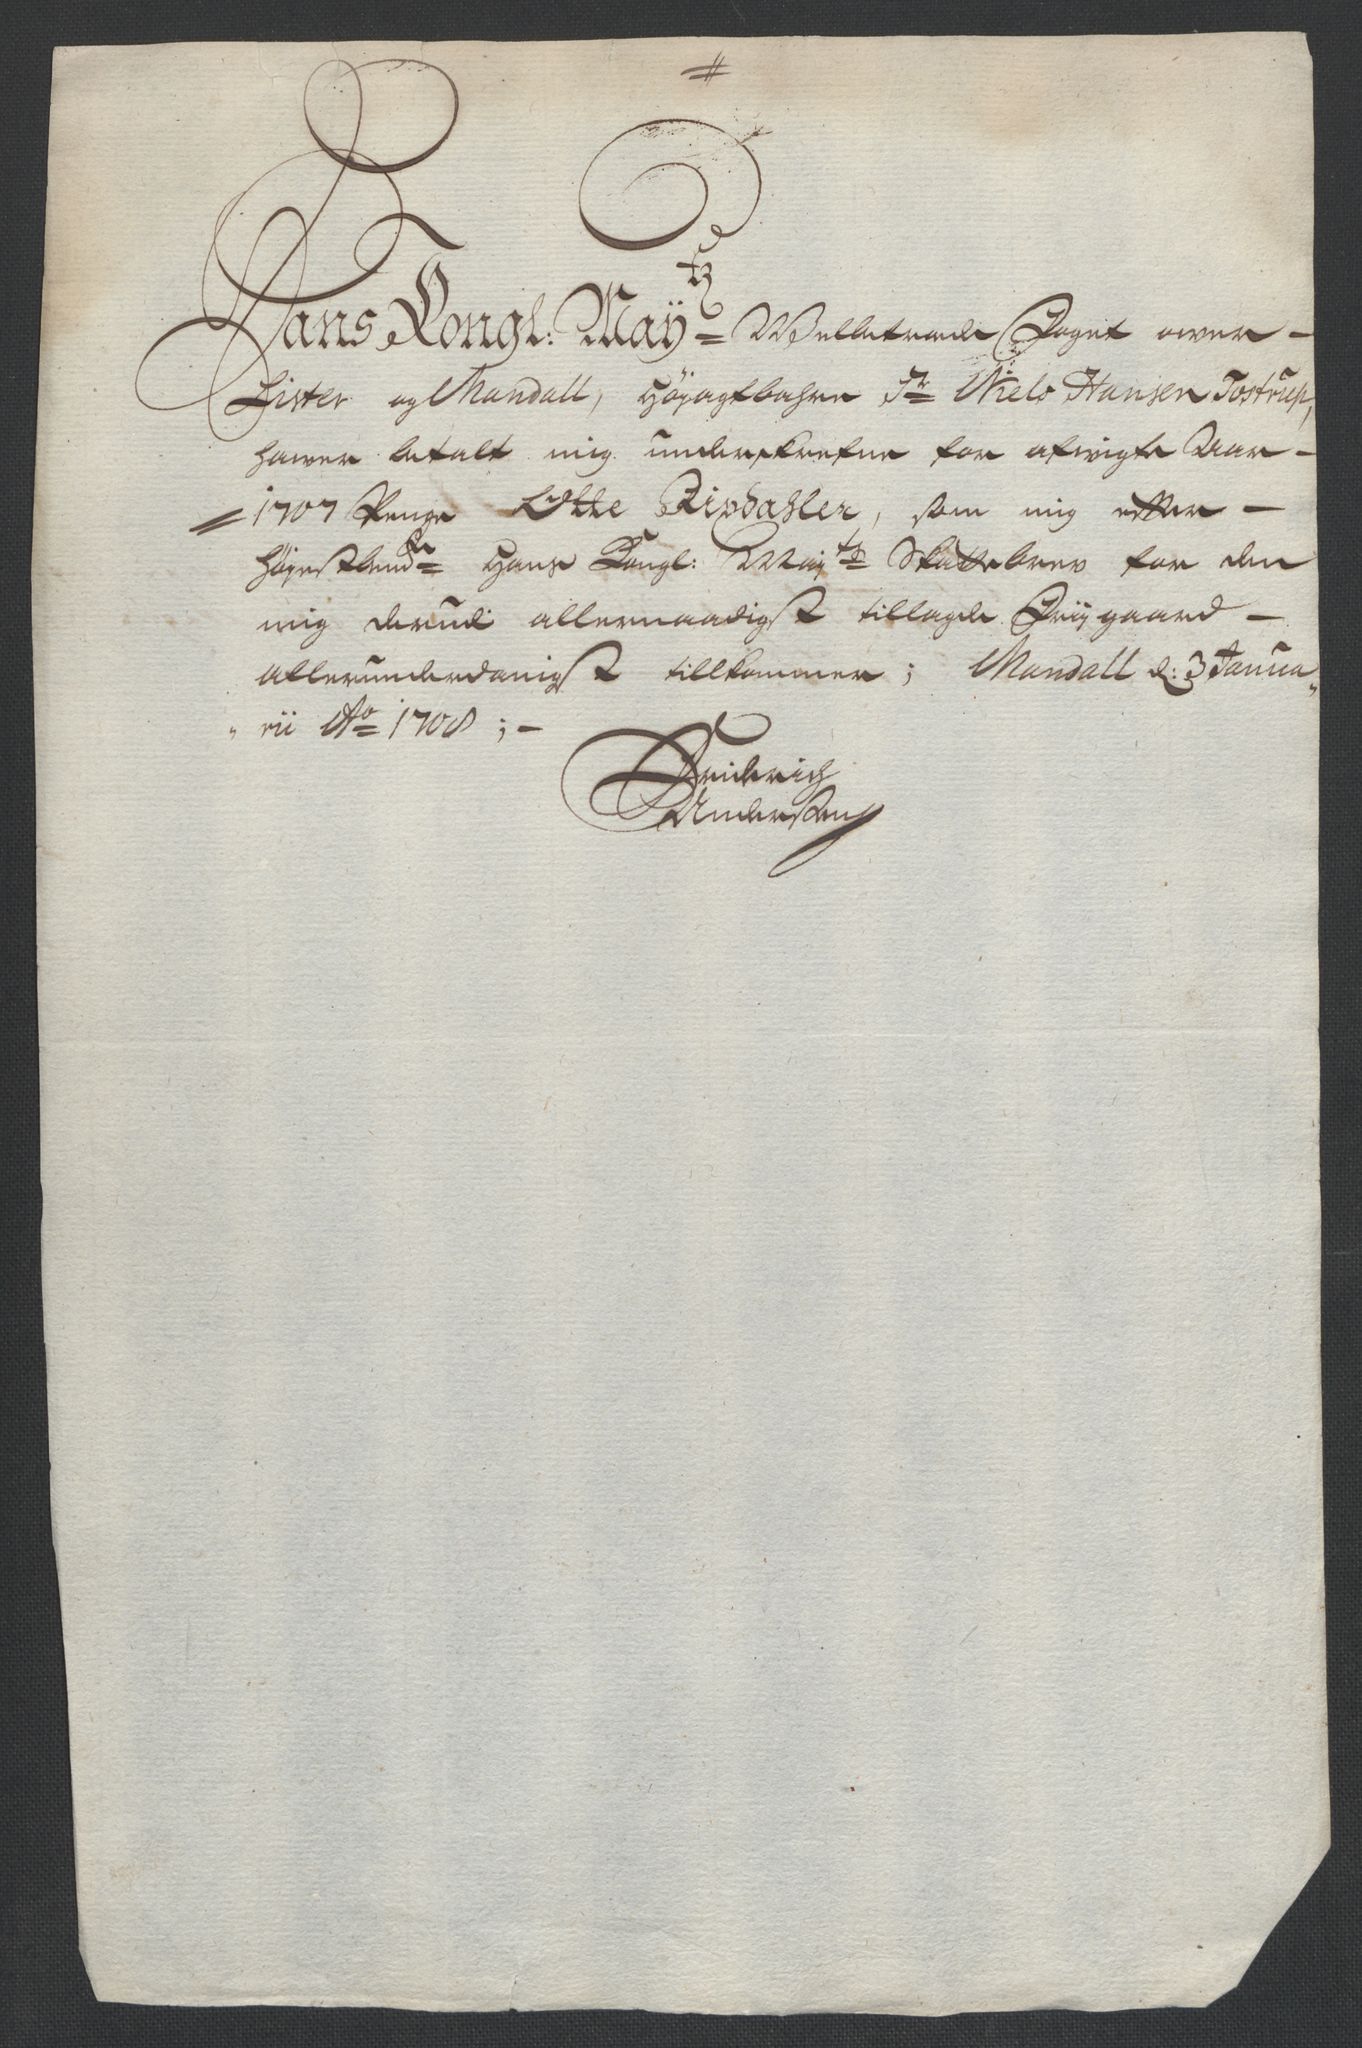 Hans Kongl: Maÿtz Welbetroede Foget ower
Lister og Mandall, Høyagtbahre Sr Niels Hansen Tostrup,
hawer betalt mig underskrefne for afvigte Aar
1707 Penge Otte Rixdahler, som mig efter
højestbemte Hans Kongl: Mayts Skattebrev for den
mig derudi allernaadigst tillagde Friigaard
allerunderdanigst tillkommer; Mandall d: 3 Janua
rii Ao 1708;
Friderich
Andersen